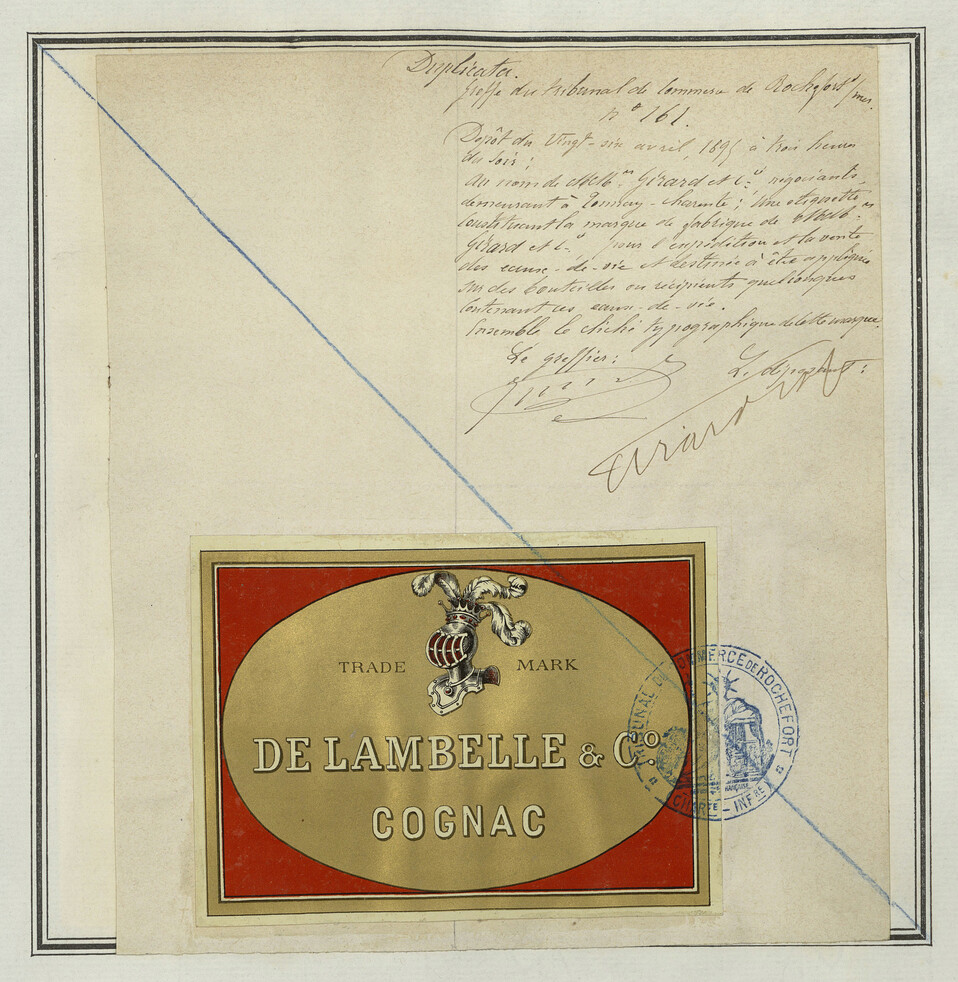 Duplicata.
Greffe du tribunal de Commerce de Rochefort s/ mer.
N° 161.
Dépôt du Vingt-six avril, 1895 à trois heures
du soir;
au nom de MM.rs Girard et C.ie négociants,
demeurant à Tonnay-Charente; Une étiquette
constituant la marque de fabrique de MM.rs
Girard et C.ie pour l'expédition et la vente
des eaux-de-vie et destinée à être appliquée
sur des bouteilles ou récipients quelconques
contenant ces eaux-de-vie.
Ensemble le cliché typographique de cette marque.
Le greffier: Le déposant:
Girard
TRADE MARK
DE LAMBELLE & Cº.
COGNAC
TRIBUNAL DE COMMERCE DE ROCHEFORT
CHARTE - INFRE